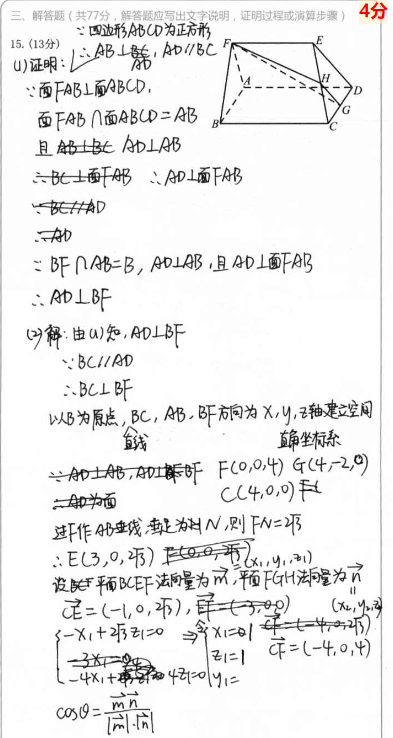 三、解答题（共77分，解答题应写出文字说明，证明过程或演算步骤）
4分
15. (13分)
∵四边形ABCD为正方形
∴AB⊥BC, AD∥BC
AD
(1)证明:
∵面FAB⊥面ABCD,
面FAB∩面ABCD=AB
且 AB⊥BC AD⊥AB
∴BC⊥面FAB ∴AD⊥面FAB
∵BC∥AD
∴AD
∵BF∩AB=B, AD⊥AB, 且AD⊥面FAB
∴AD⊥BF
(2)解:由(1)知, AD⊥BF
∵BC∥AD
∴BC⊥BF
以B为原点, BC, AB, BF方向为x, y, z轴建立空间
直线
直角坐标系
∵AD⊥AB, AD⊥BF F(0,0,4) G(4,-2,0)
∴AD为面 C(4,0,0)
过F作AB垂线,垂足为N, 则FN=2√3
∴E(3,0,2√3) F(0,0,2√3) (x₁,y₁,z₁)
设平面BCEF法向量为m, 平面FGH法向量为n
(x₂,y₂,z₂)
CE=(-1,0,2√3), EF=(-3,0,0)
CF=(-4,0,2√3)
CF=(-4,0,4)
-x₁+2√3z₁=0 ⇒ 令 x₁=1
-3x₁=0 z₁=1
-4x₁+4z₁=0 y₁=
cosθ=m·n/|m|·|n|
F
E
A
H
D
G
B
C